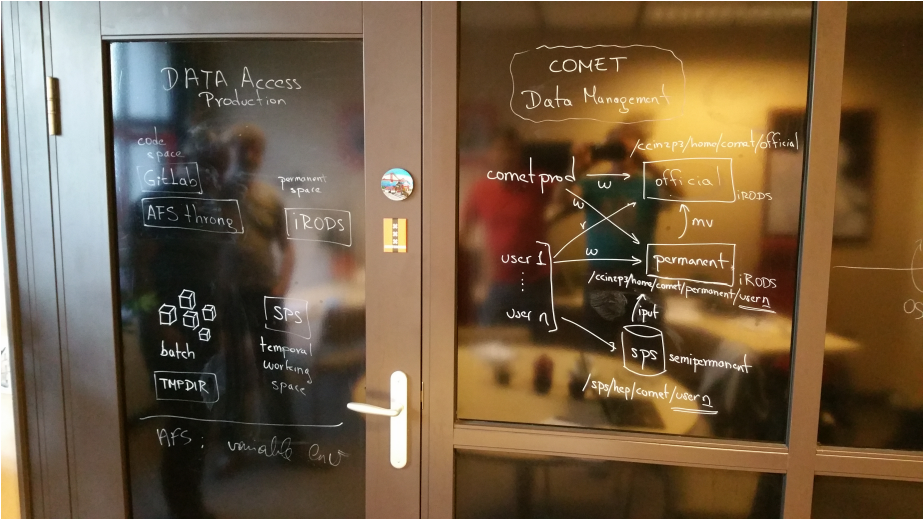 DATA Access
Production
code
space
GitLab
AFS throng
permanent
space
iRODS
batch
TMPDIR
SPS
temporal
working
space
AFS : variable env
COMET
Data Management
/ccin2p2/home/comet/official
cometprod
w
official
iRODS
w
r
mv
user 1
w
permanent
iRODS
/ccin2p2/home/comet/permanent/user n
user n
iput
sps
semipermanent
/sps/hep/comet/user n